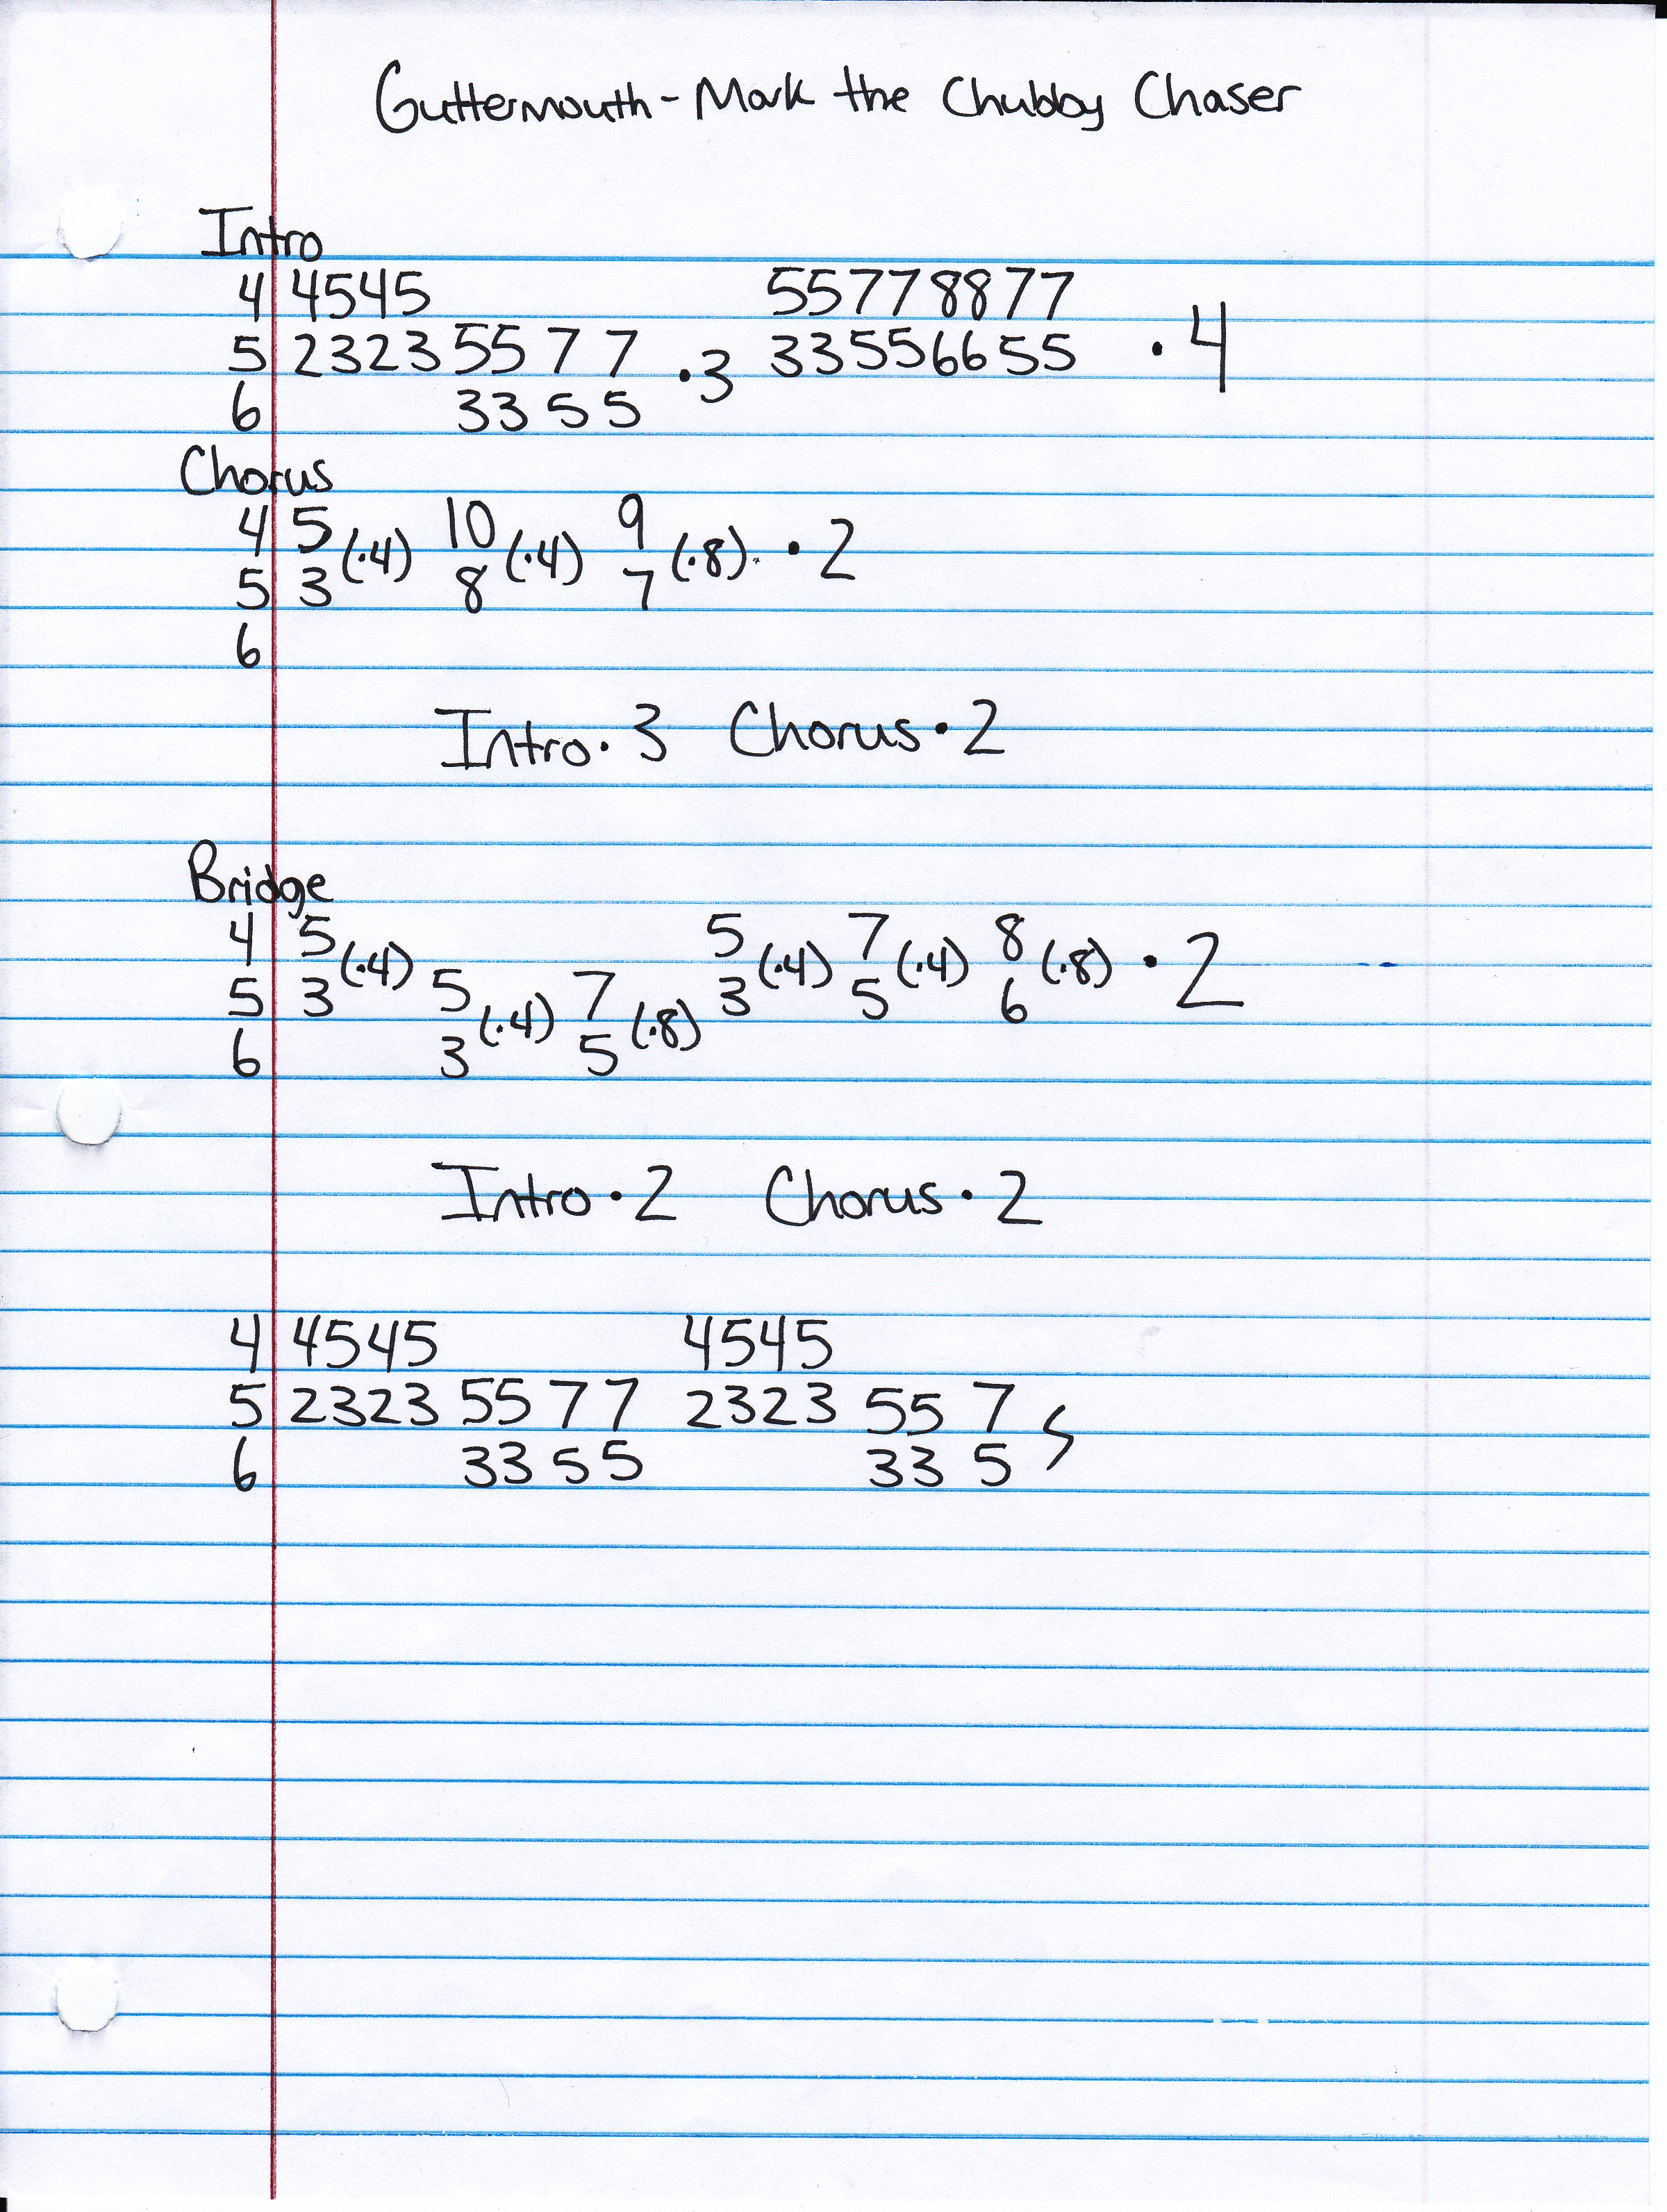 Guttermouth - Mark the Chubby Chaser
Intro
4 4545 55778877
5 2323 55 7 7 •3 33556655 •4
6 33 5 5
Chorus
4 5 (•4) 10 (•4) 9 (•8) •2
5 3 8 7
6
Intro • 3 Chorus • 2
Bridge
4 5 (•4) 5 (•4) 7 (•4) 8 (•8) • 2
5 3 5 (•4) 7 (•8) 3 5 6
6 3 5
Intro • 2 Chorus • 2
4 4545 4545
5 2323 55 7 7 2323 55 7
6 33 5 5 33 5